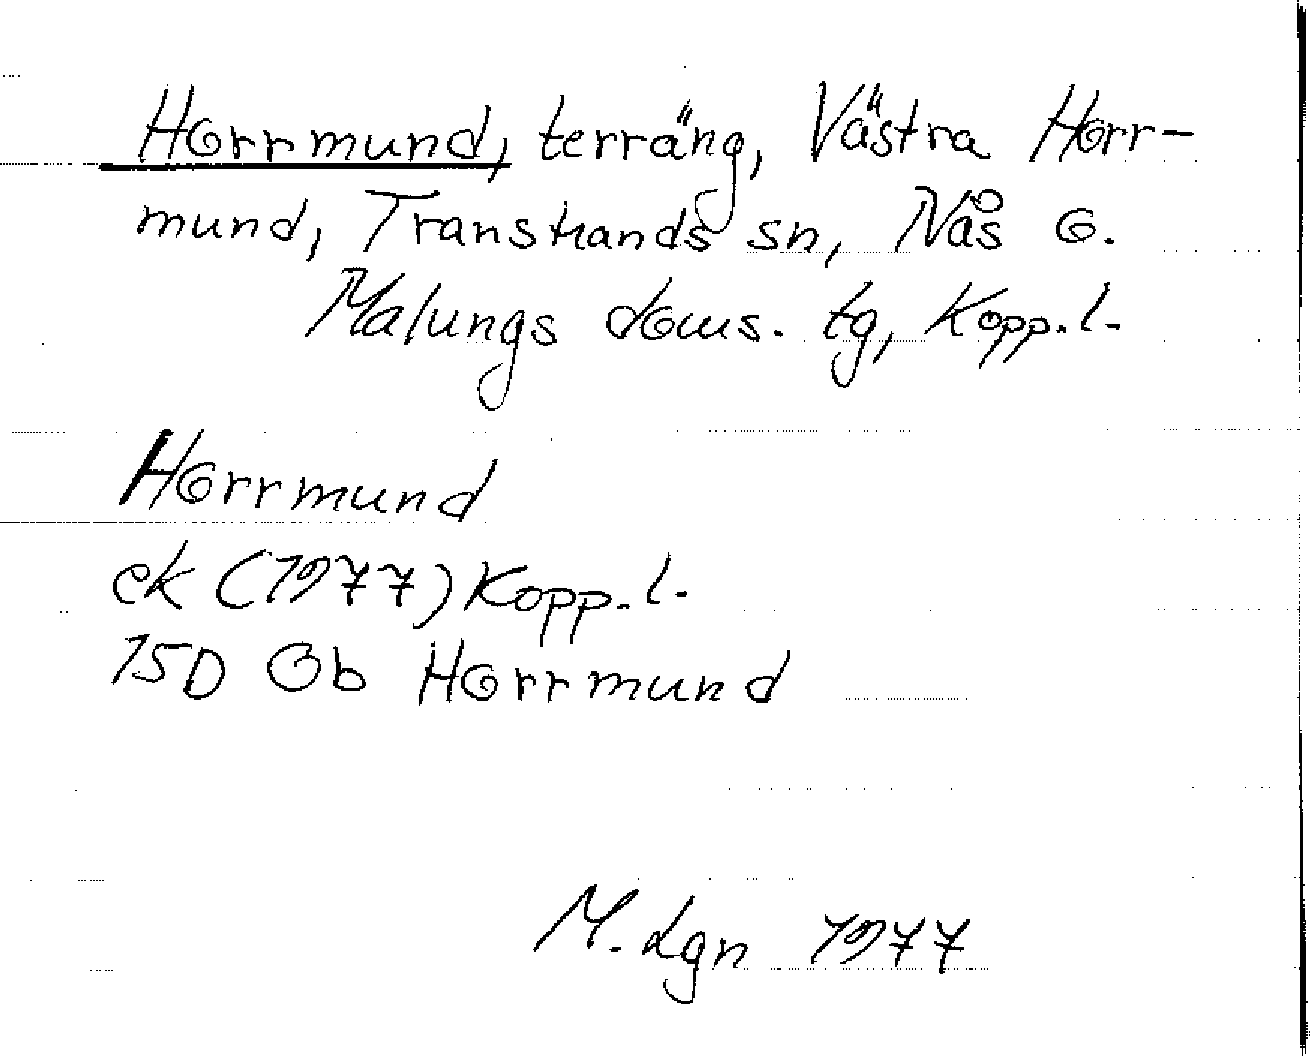 Horrmund, terräng, Västra Horr-
mund, Transtrands sn, Nås o.
Malungs doms. tg, Kopp.l.
Horrmund
ek (1977) Kopp.l.
15D 0b Horrmund
M. Lgn 1977